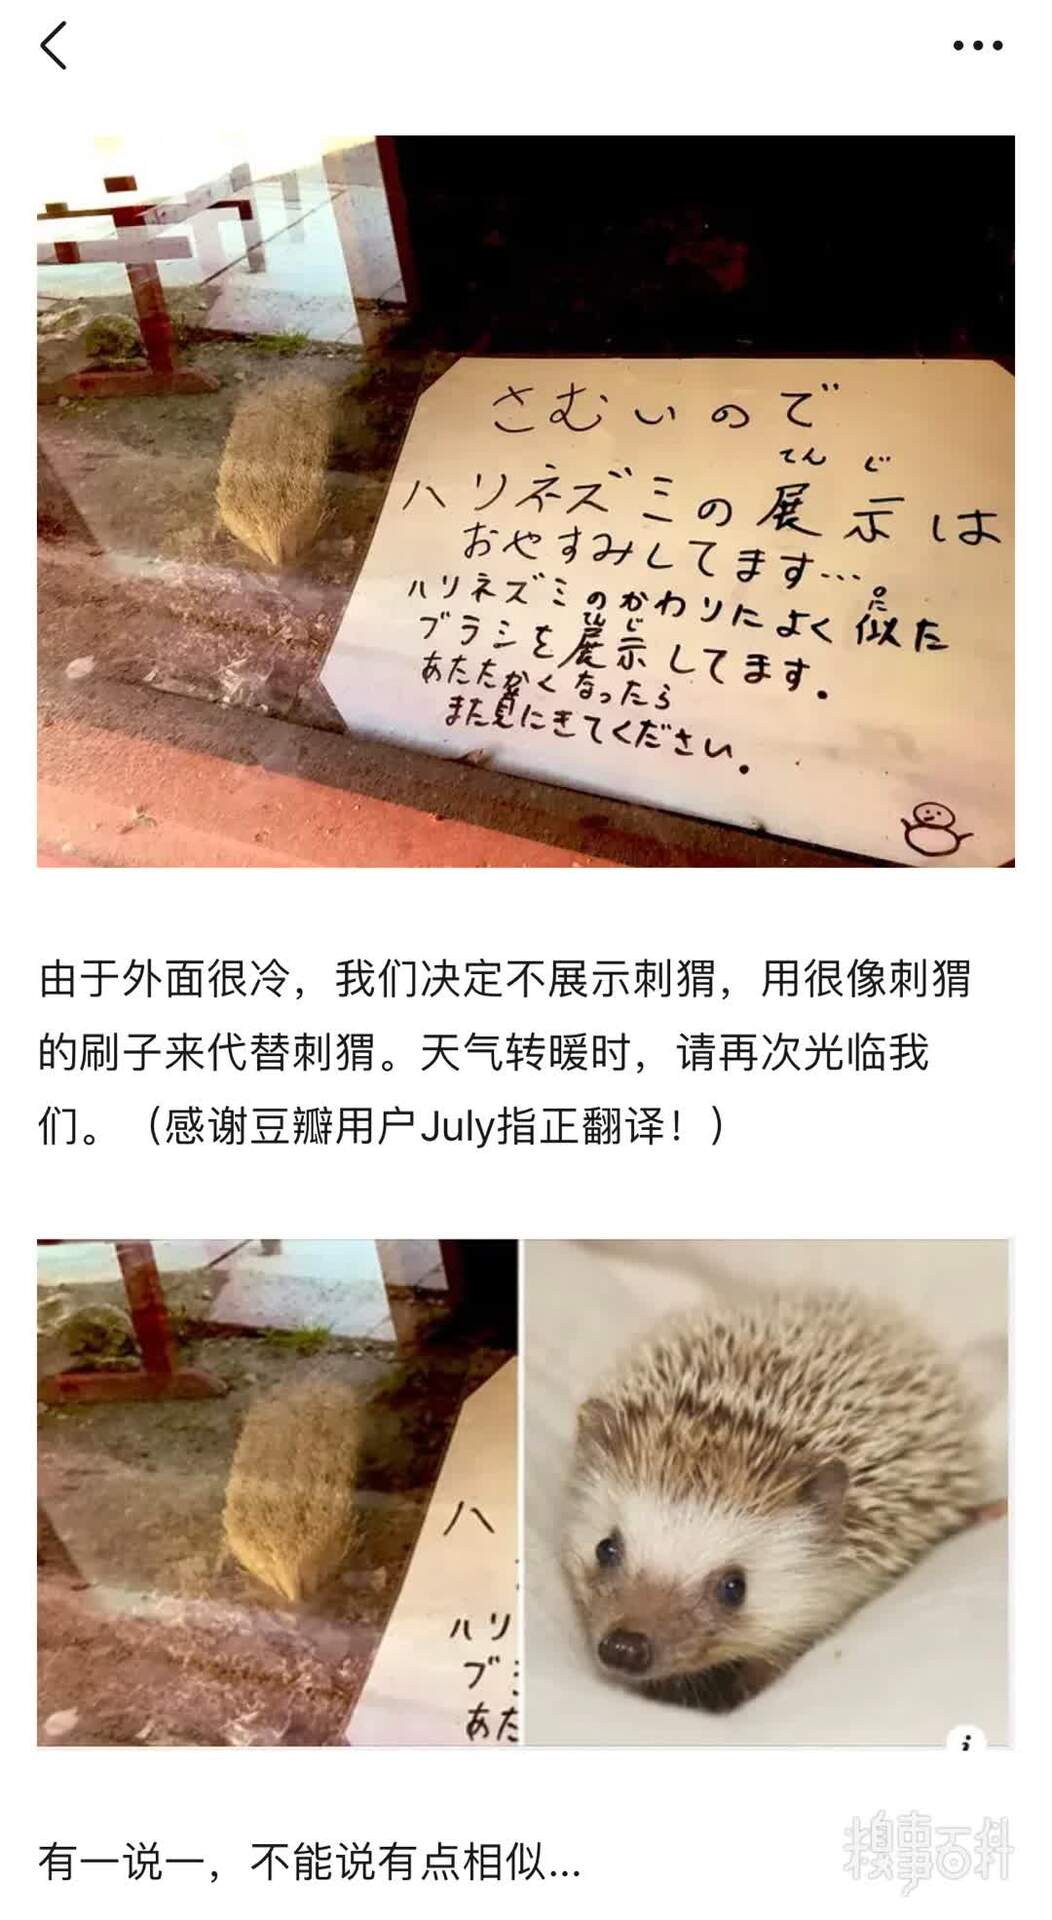 さむいので
てんじ
ハリネズミの展示は
おやすみしてます…
ハリネズミのかわりによく似た
に
てんじ
ブラシを展示してます。
あたたかくなったら
また見にきてください。
由于外面很冷，我们决定不展示刺猬，用很像刺猬
的刷子来代替刺猬。天气转暖时，请再次光临我
们。（感谢豆瓣用户July指正翻译！）
ハ
ハリ
ブ
あた
i
有一说一，不能说有点相似...
糗事百科